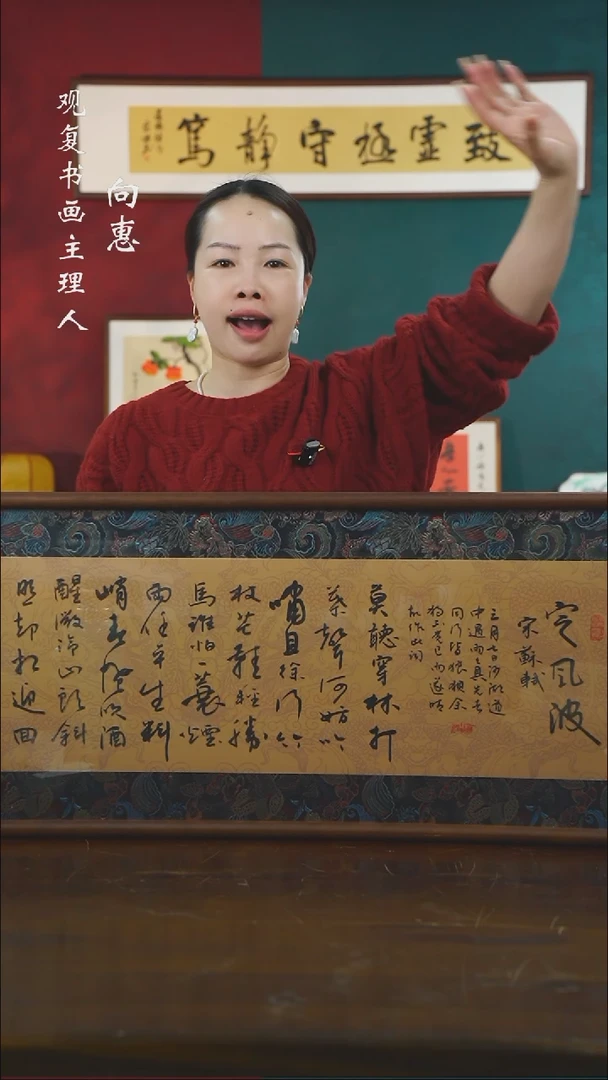 观复书画主理人
向惠
致虚極守静篤
定风波
宋蘇軾
三月七日沙湖道
中遇雨雨具先去
同行皆狼狽余
獨不覺已而遂晴
故作此詞
莫聽穿林打
葉聲何妨吟
嘯且徐行竹
杖芒鞋輕勝
馬誰怕一蓑煙
雨任平生料
峭春風吹酒
醒微冷山頭斜
照却相迎回